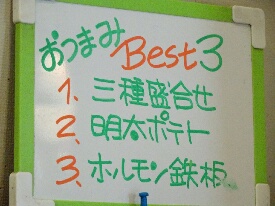 おつまみ Best3
1. 三種盛合せ
2. 明太ポテト
3. ホルモン鉄板